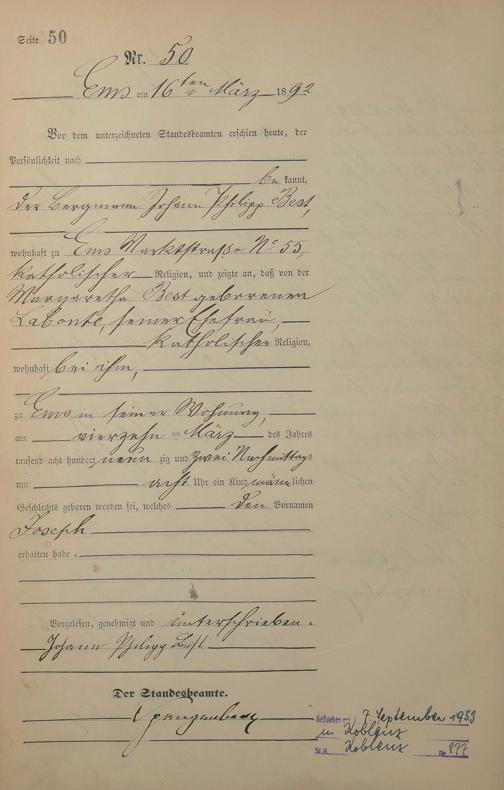 Seite 50
Nr. 50
Ems am 16ten März 1892
Vor dem unterzeichneten Standesbeamten erschien heute, der
Persönlichkeit nach
be kannt,
der Bergmann Johann Philipp Best,
wohnhaft zu Ems Marktstraße No 55,
katholischer Religion, und zeigte an, daß von der
Margaretha Best geborenen
Labonte, seiner Ehefrau,
katholischer Religion,
wohnhaft bei ihm,
zu Ems in seiner Wohnung,
am vierzehn ten März des Jahres
tausend acht hundert neun zig und zwei Nachmittags
um acht Uhr ein Kind männ lichen
Geschlechts geboren worden sei, welches den Vornamen
Joseph
erhalten habe.
Vorgelesen, genehmigt und unterschrieben.
Johann Philipp Best
Der Standesbeamte.
Spangenberg
Gestorben am 7. September 1953
in Koblenz
St.A. Koblenz Nr. 877